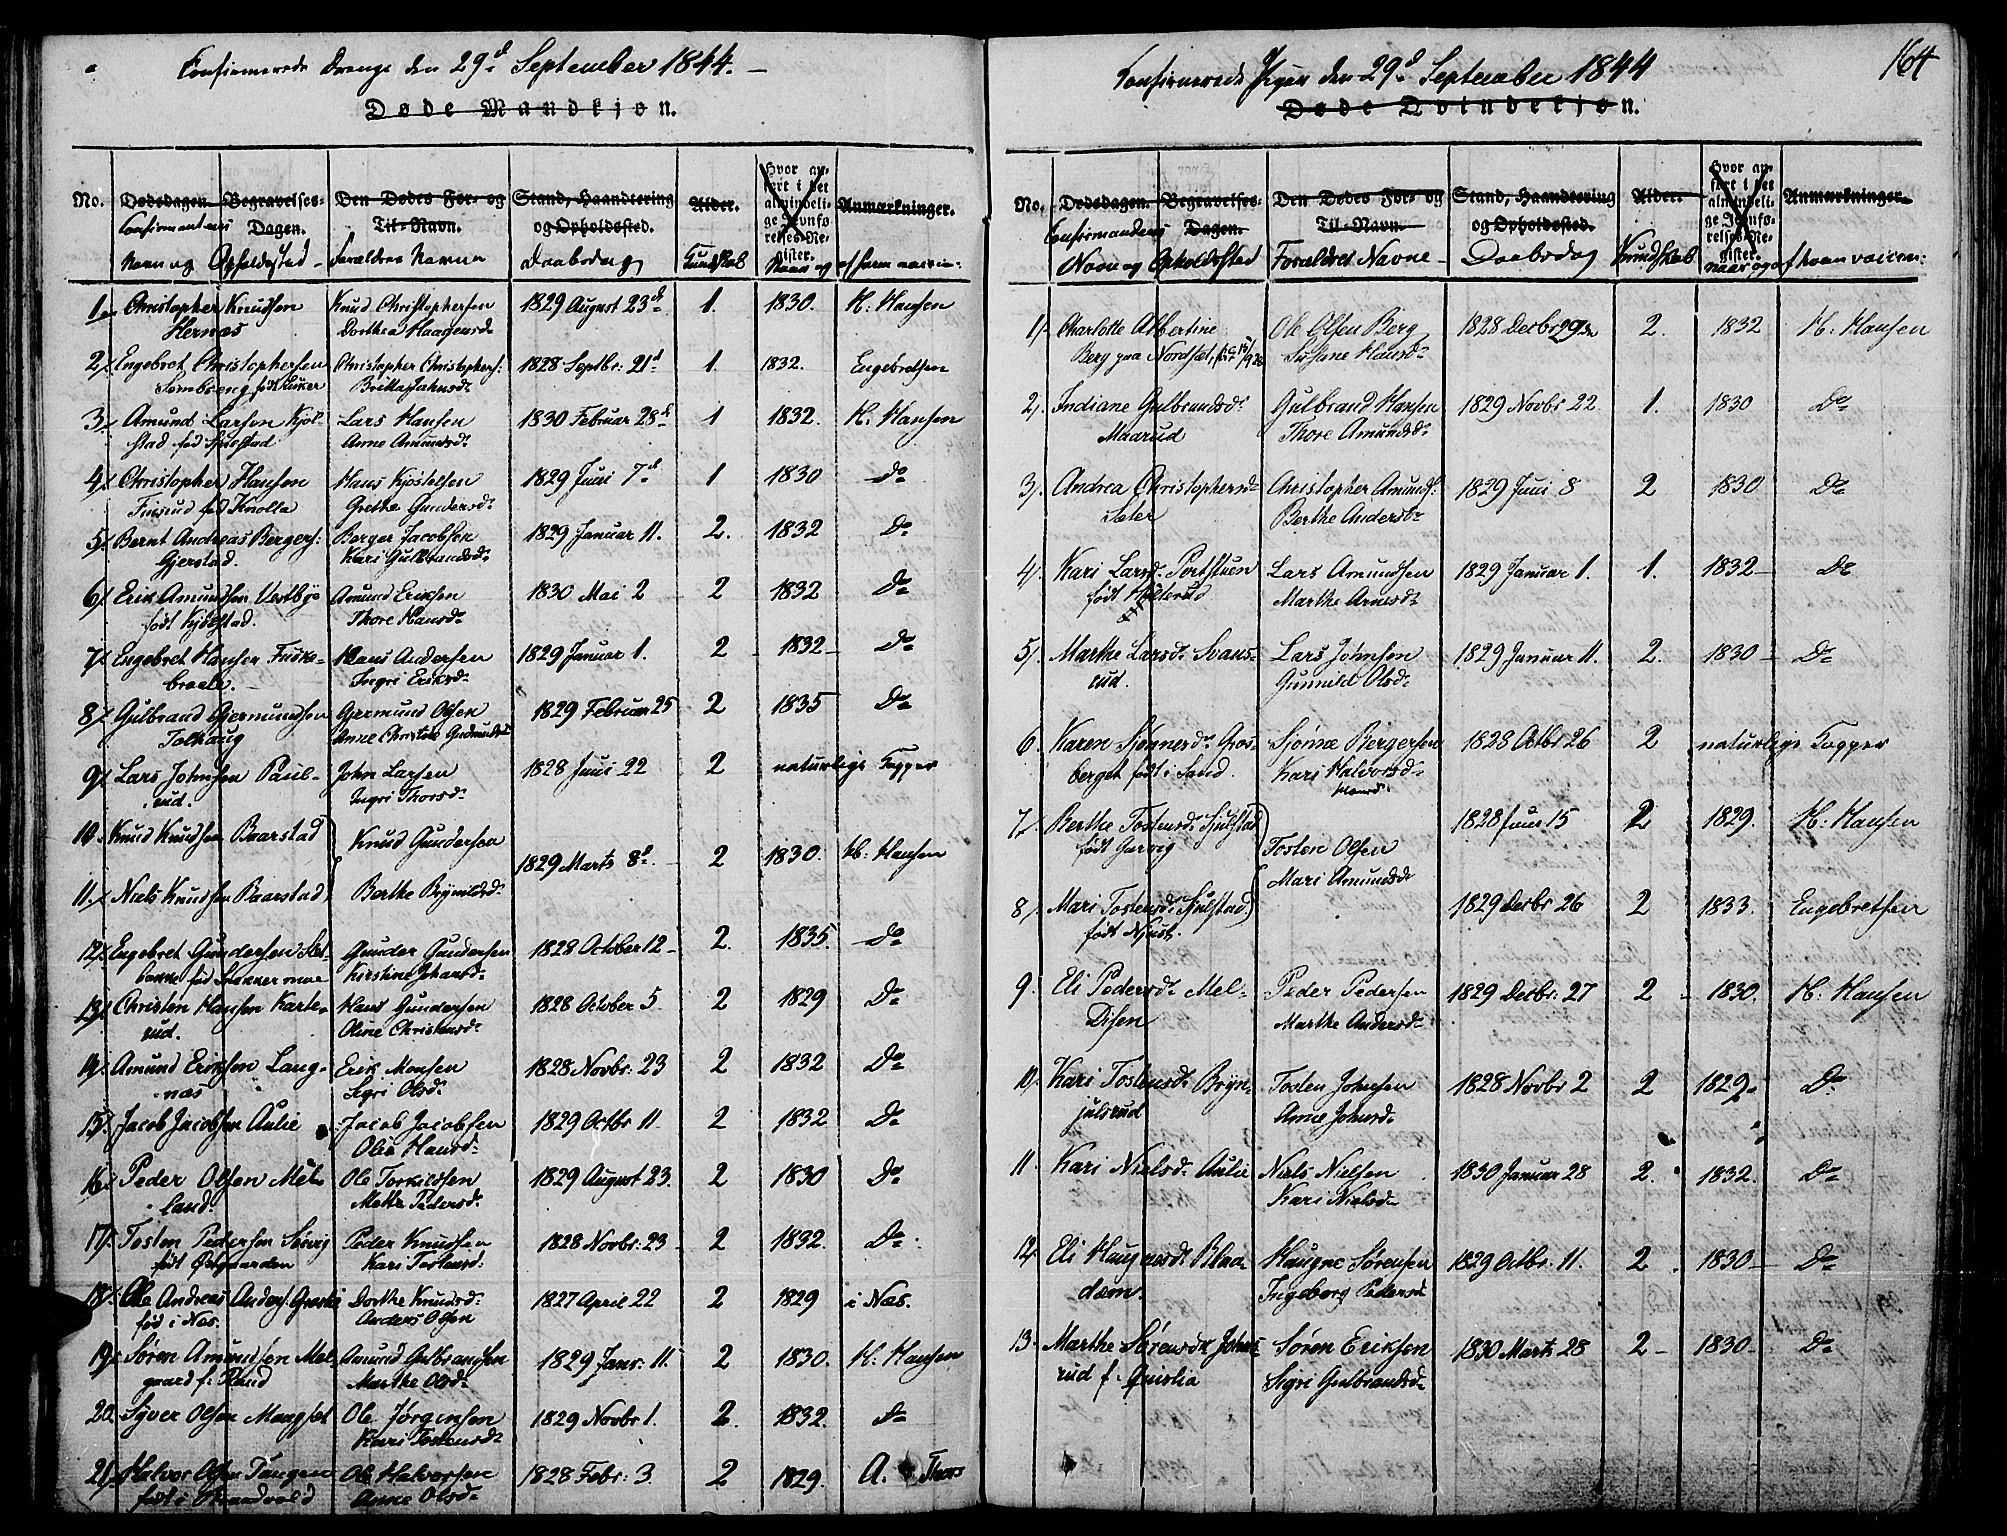 Confirmerede Drenge den 29d September 1844.
Døde Mandkjøn.
No. Dødsdagen. Begravelses-Dagen. Den Dødes For- og Til-Navn. Stand, Haandtering og Opholdssted. Alder. Hvor anført i det almindelige Jevnførelses-Register. Anmærkninger.
Confirmandens Navn og Opholdssted Forældres Navne Daabsdag Kundskab Naar og af hvem vaccin:
1. Christopher Knudsen Knud Christophersen 1829 August 23d 1. 1830. H: Hansen
Hernæs Dorthea Haagensd
2. Engebret Christophersen Christopher Christophers: 1828 Septbr: 21d 1. 1832. Engebretsen
Britta Jahnsd
3. Amund Larsen Kjöl- Lars Hansen 1830 Februar 28d 1 1832. H. Hansen
stad fød Anne Amundsd
4. Christopher Hansen Hans Kjöstelsen 1829 Juni 7d 1 1830 Do
fød Knolla Grethe Gundersd
5. Bernt Andreas Bergers: Berger Jacobsen 1829 Januar 11. 2. 1832 Do
Gjerstad. Kari Gulbrandsd
6. Erik Amundsen Vestbye Amund Eriksen 1830 Mai 2 2 1832 Do
født Kjölstad. Thore Hansd
7. Engebret Hansen Fuske- Hans Andersen 1829 Januar 1. 2 1832 Do
Ingri Eriksd
8. Gulbrand Gjermundsen Gjermund Olsen 1829 Februar 25 2 1835 Do
Tolhaug Anne Christik Gudmundsd
9. Lars Johnsen Paul- John Larsen 1828 Juni 22 2 naturlige Kopper
rud. Ingri Thorsd
10. Knud Knudsen Baarstad Knud Gundersen
1829 Marts 8d 2 1830. H: Hansen
11. Niels Knudsen Baarstad Berthe Brynildsd
12. Engebret Gundersen Gunder Gundersen 1828 October 12 2. 1835. Do
Kirstine Johansd
13. Christen Hansen Karle- Hans Gundersen 1828 October 5 2 1829 Do
rud. Oline Christensd
14. Amund Eriksen Lang- Erik Monsen 1828 Novbr: 23 2 1832 Do
næs Sigri Olsd
15. Jacob Jacobsen Aulie Jacob Jacobsen 1829 Octbr 11 2 1832 Do
Olea Hansd
16. Peder Olsen Mel- Ole Torkildsen 1829 August 23. 2 1830 Do
land. Mette Pedersd
17. Tosten Pedersen Sörvig Peder Knudsen 1828 Novbr: 23 2 1832. Do
født Østgaarden Kari Tostensd:
18. Ole Andreas Anders. Dorthe Knudsd: 1827 April 22 2 1829 i Næs.
fød i Næs. Anders Olsen
19. Søren Amundsen Mel- Amund Gulbrandsen 1829 Janr: 11. 2 1830. H. Hansen
gaard f: Rand Marthe Olsd
20. Syver Olsen Mangset Ole Jørgensen 1829 Novbr 1. 2. 1832. Do
Kari Tostensd
21. Halvor Olsen Tangen Ole Halvorsen 1828 Febr: 3 2 1829. A. Thors
født i Strandvold Anne Olsd
164
Confirmerede Piger den 29d September 1844
Døde Qvindekjøn.
No. Dødsdagen. Begravelses-Dagen. Den Dødes For- og Til-Navn. Stand, Haandtering og Opholdssted. Alder. Hvor anført i det almindelige Jevnførelses-Register. Anmærkninger.
Confirmandens Navn og Opholdssted Forældres Navne Daabsdag Kundskab Naar og af hvem vaccin:
1. Charlotte Albertine Ole Olsen Berg 1828 Decbr 29 2. 1832 H: Hansen
Berg paa Nordset, Susane Hansd
2. Indiane Gulbrandsd Gulbrand Hansen 1829 Novbr 22 1. 1830 Do
Maarud Thore Amundsd
3. Andrea Christophersd Christopher Amunds: 1829 Juni 8 2 1830 Do
Sæter Berthe Andersd
4. Kari Larsd Portstuen Lars Amundsen 1829 Januar 1. 1. 1832 Do
født Marthe Arnesd
5. Marthe Larsd Svans- Lars Johnsen 1829 Januar 11. 2. 1830 Do
rud. Gunnild Olsd
6. Karen Sjønnesd Gros- Sjønne Bergersen 1828 Octbr 26 2 naturlige Kopper
berget født i Sand. Kari Halvorsd
Hansd
7. Berthe Tostensd Sjulstad 1828 Juni 15 2 1829. H: Hansen
født Garvig Tosten Olsen
Mari Amundsd
8. Mari Tostensd Sjulstad 1829 Decbr 26 2 1833. Engebretsen
født
9. Eli Pedersd Mel- Peder Pedersen 1829 Decbr: 27 2 1830. H: Hansen
Disen Marthe Andersd
10. Kari Tostensd Bryn- Tosten Johnsen 1828 Novbr 2 2 1829 Do
julsrud Anne Johnsd
11. Kari Nielsd Aulie Niels Nielsen 1830 Januar 28 2. 1832. Do
Kari Nielsd
12. Eli Haugnesd Blaa- Haugne Sørensen 1829 Octbr: 11. 2 1830 Do
dæm. Ingeborg Pedersd
13. Marthe Sørensdtr Johns- Søren Eriksen 1830 Marts 28 2 1830 Do
rud f. Quislia Sigri Gulbrandsd